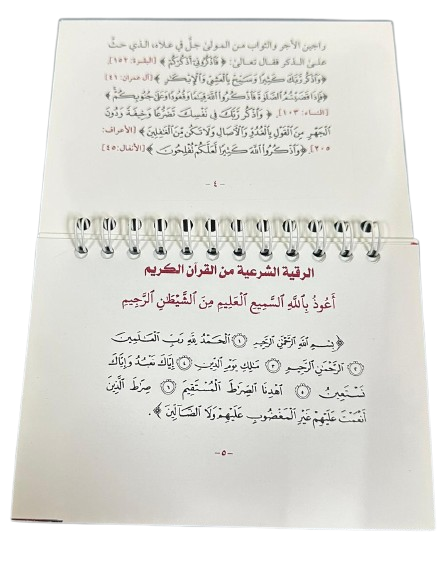 راجين الأجر والثواب من المولىٰ جلَّ في علاه، الذي حثَّ
علىٰ الذكر فقال تعالىٰ: ﴿فَٱذْكُرُونِىٓ أَذْكُرْكُمْ﴾ [البقرة: ١٥٢].
﴿وَٱذْكُر رَّبَّكَ كَثِيرًا وَسَبِّحْ بِٱلْعَشِىِّ وَٱلْإِبْكَٰرِ﴾ [آل عمران: ٤١]
﴿فَإِذَا قَضَيْتُمُ ٱلصَّلَوٰةَ فَٱذْكُرُوا۟ ٱللَّهَ قِيَٰمًا وَقُعُودًا وَعَلَىٰ جُنُوبِكُمْ﴾
[النساء: ١٠٣]. ﴿وَٱذْكُر رَّبَّكَ فِى نَفْسِكَ تَضَرُّعًا وَخِيفَةً وَدُونَ
ٱلْجَهْرِ مِنَ ٱلْقَوْلِ بِٱلْغُدُوِّ وَٱلْءَاصَالِ وَلَا تَكُن مِّنَ ٱلْغَٰفِلِينَ﴾ [الأعراف:
٢٠٥]. ﴿وَٱذْكُرُوا۟ ٱللَّهَ كَثِيرًا لَّعَلَّكُمْ تُفْلِحُونَ﴾ [الأنفال: ٤٥]
- ٤ -
الرقية الشرعية من القرآن الكريم
أَعُوذُ بِٱللَّهِ ٱلسَّمِيعِ ٱلْعَلِيمِ مِنَ ٱلشَّيْطَٰنِ ٱلرَّجِيمِ
﴿بِسْمِ ٱللَّهِ ٱلرَّحْمَٰنِ ٱلرَّحِيمِ ١ ٱلْحَمْدُ لِلَّهِ رَبِّ ٱلْعَٰلَمِينَ
٢ ٱلرَّحْمَٰنِ ٱلرَّحِيمِ ٣ مَٰلِكِ يَوْمِ ٱلدِّينِ ٤ إِيَّاكَ نَعْبُدُ وَإِيَّاكَ
نَسْتَعِينُ ٥ ٱهْدِنَا ٱلصِّرَٰطَ ٱلْمُسْتَقِيمَ ٦ صِرَٰطَ ٱلَّذِينَ
أَنْعَمْتَ عَلَيْهِمْ غَيْرِ ٱلْمَغْضُوبِ عَلَيْهِمْ وَلَا ٱلضَّآلِّينَ﴾.
- ٥ -